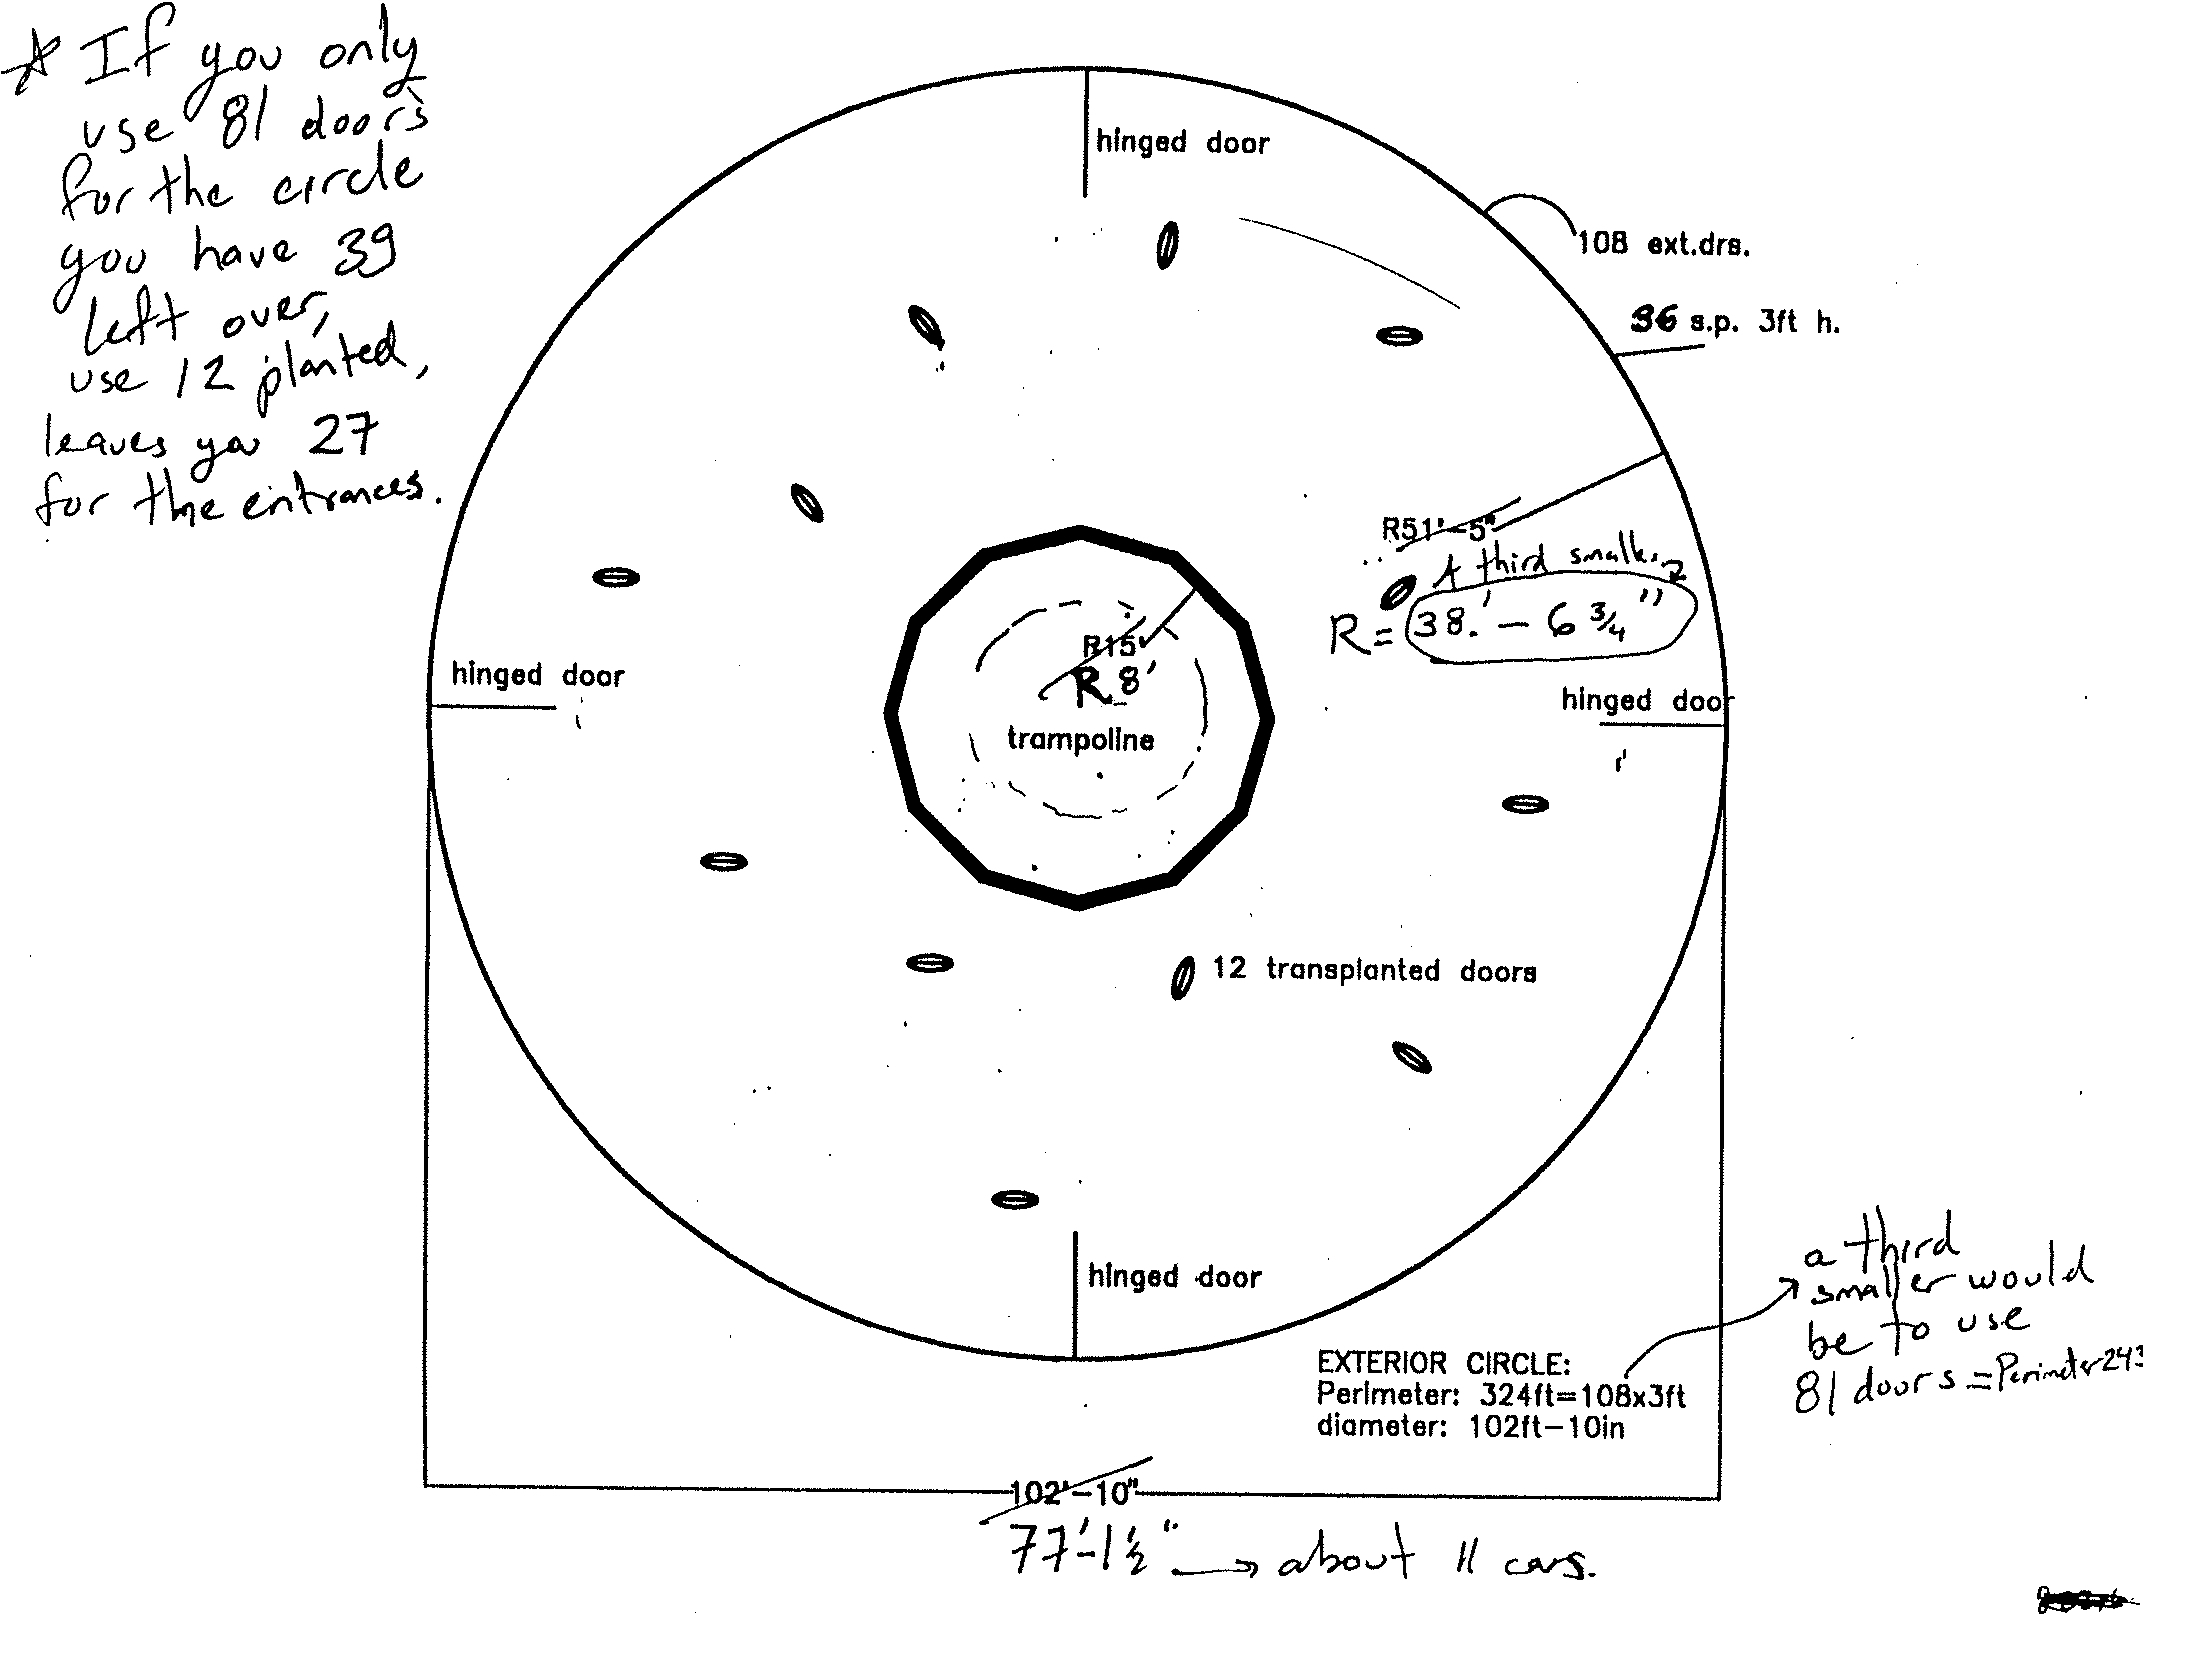 * If you only
use 81 doors
for the circle
you have 39
left over,
use 12 planted,
leaves you 27
for the entrances.
hinged door
108 ext.drs.
36 s.p. 3ft h.
R51'-5"
A third smaller
R = 38.'-6 3/4"
R15'
R 8'
trampoline
hinged door
hinged door
12 transplanted doors
hinged door
a third
smaller would
be to use
81 doors = Perimeter 243
EXTERIOR CIRCLE:
Perimeter: 324ft=108x3ft
diameter: 102ft-10in
102'-10"
77'-1 1/2" → about 11 cars.